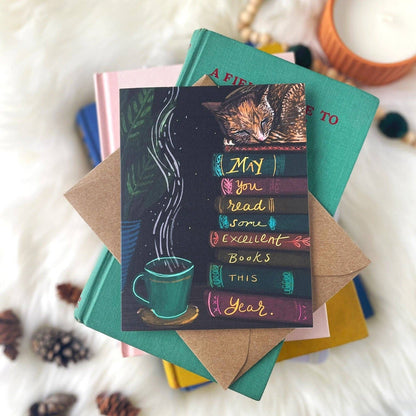 A FIE
E TO
MAY
You
read
Some
EXCELLENT
BOOKS
THIS
Year.